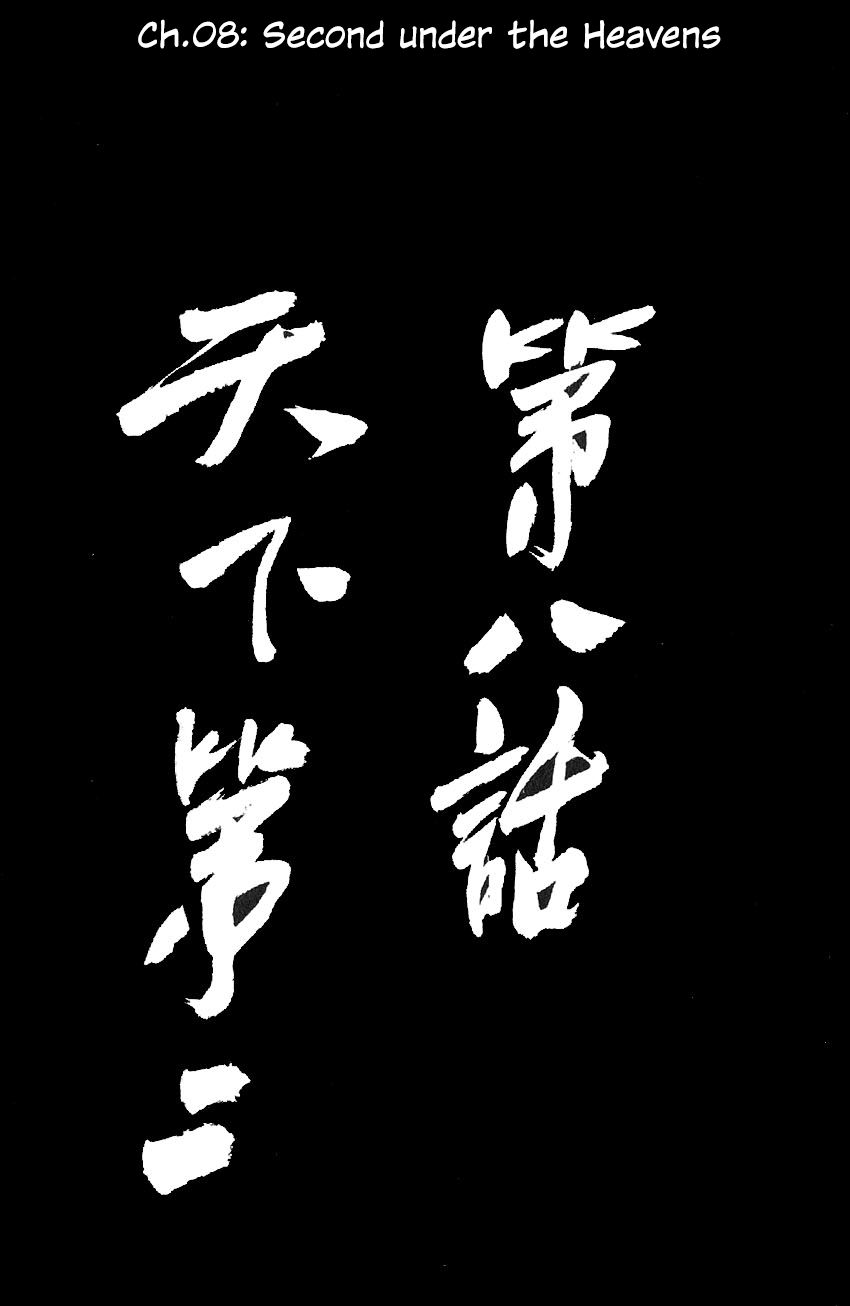 Ch.08: Second under the Heavens
第八話
天下第二